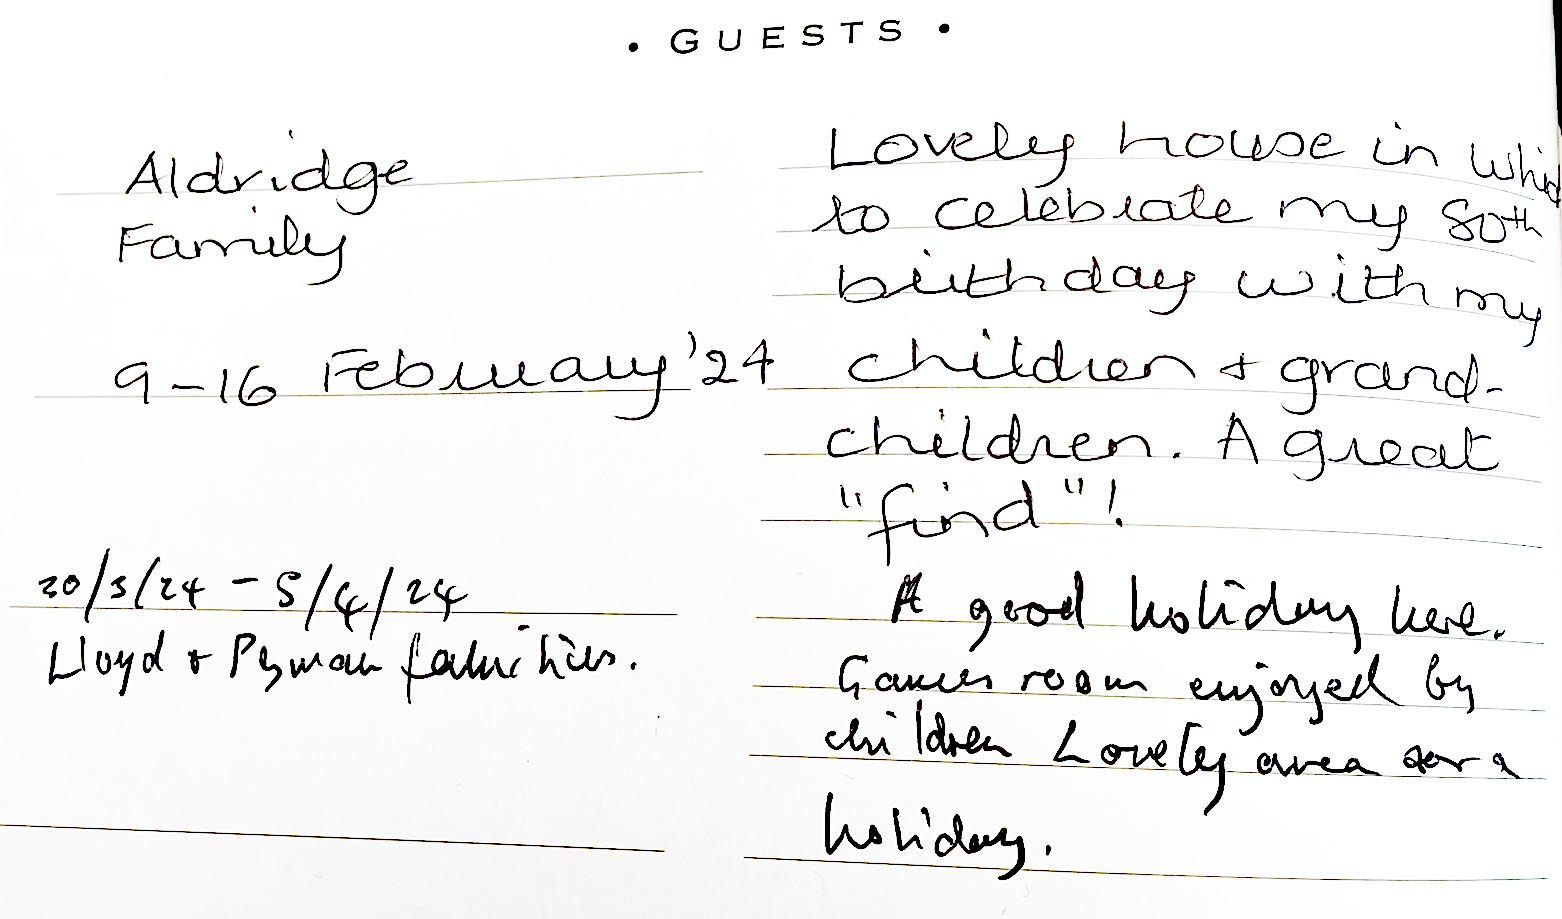 • GUESTS •
Aldridge
Family
9-16 February '24
Lovely house in which
to celebrate my 80th
birthday with my
children + grand-
children. A great
"find"!
20/3/24 - 5/4/24
Lloyd + Pyman families.
A good holiday here.
Games room enjoyed by
children Lovely area for a
holiday.